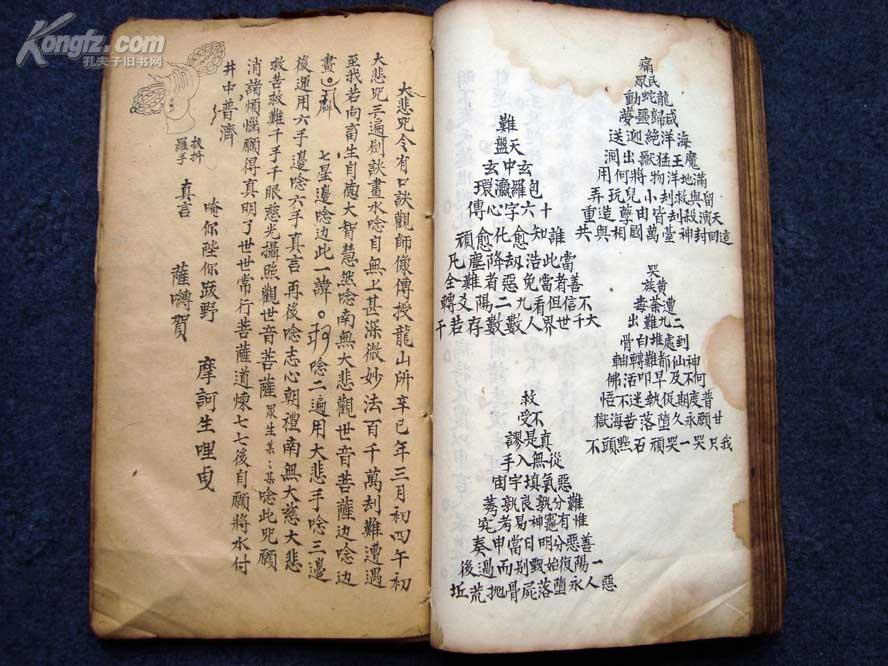 痛
民眾
龍蛇動
海洋絕迎送
魔王猛獸出洞
滿地洋物將何用
留與救刦小兒玩弄
天演殺刦皆由孽造重
這回封神臺萬國相與共
難
天盤
玄中玄
包羅瀛環
十六字心傳
誰知愈化愈頑
當此浩刼降塵凡
善者當免惡者難全
不信但看九二陽爻轉
大千世界人數數存若干
哭
黃族
遭荼毒
二九難出
到處堆白骨
神仙都難轉軸
何不及早叩活佛
普度期執迷不悟
甘願永久墮落苦海獄
我只哭一哭頑石點頭不
救
不受
真是謬
從無入手
惡氣填宇宙
難分孰良孰莠
惟有神易考究
善惡分明日當申奏
一陽復始戰剝而過後
惡人永墮落屍骨拋荒坵
大悲咒今有口訣觀師像傳授龍山所辛巳年三月初四午初
大悲咒三遍刽訣畫水唸自無上甚深微妙法百千萬刦難遭遇
至我若向畜生自德大智慧然唸南無大悲觀世音菩薩邊唸邊
畫 七星邊唸边此一諱 唸二遍用大悲手唸三邊
後運用六手邊唸六手真言再後唸志心朝禮南無大慈大悲
救苦救難千手千眼慈光攝照觀世音菩薩眾生某某唸此咒願
消諸煩惱願得真明了世世常行菩薩道煉七七後自願將水付
井中普濟
真言 唵你陛你跋野 摩訶生哩曳 薩嚩賀
羅手
Kongfz.com
孔夫子旧书网